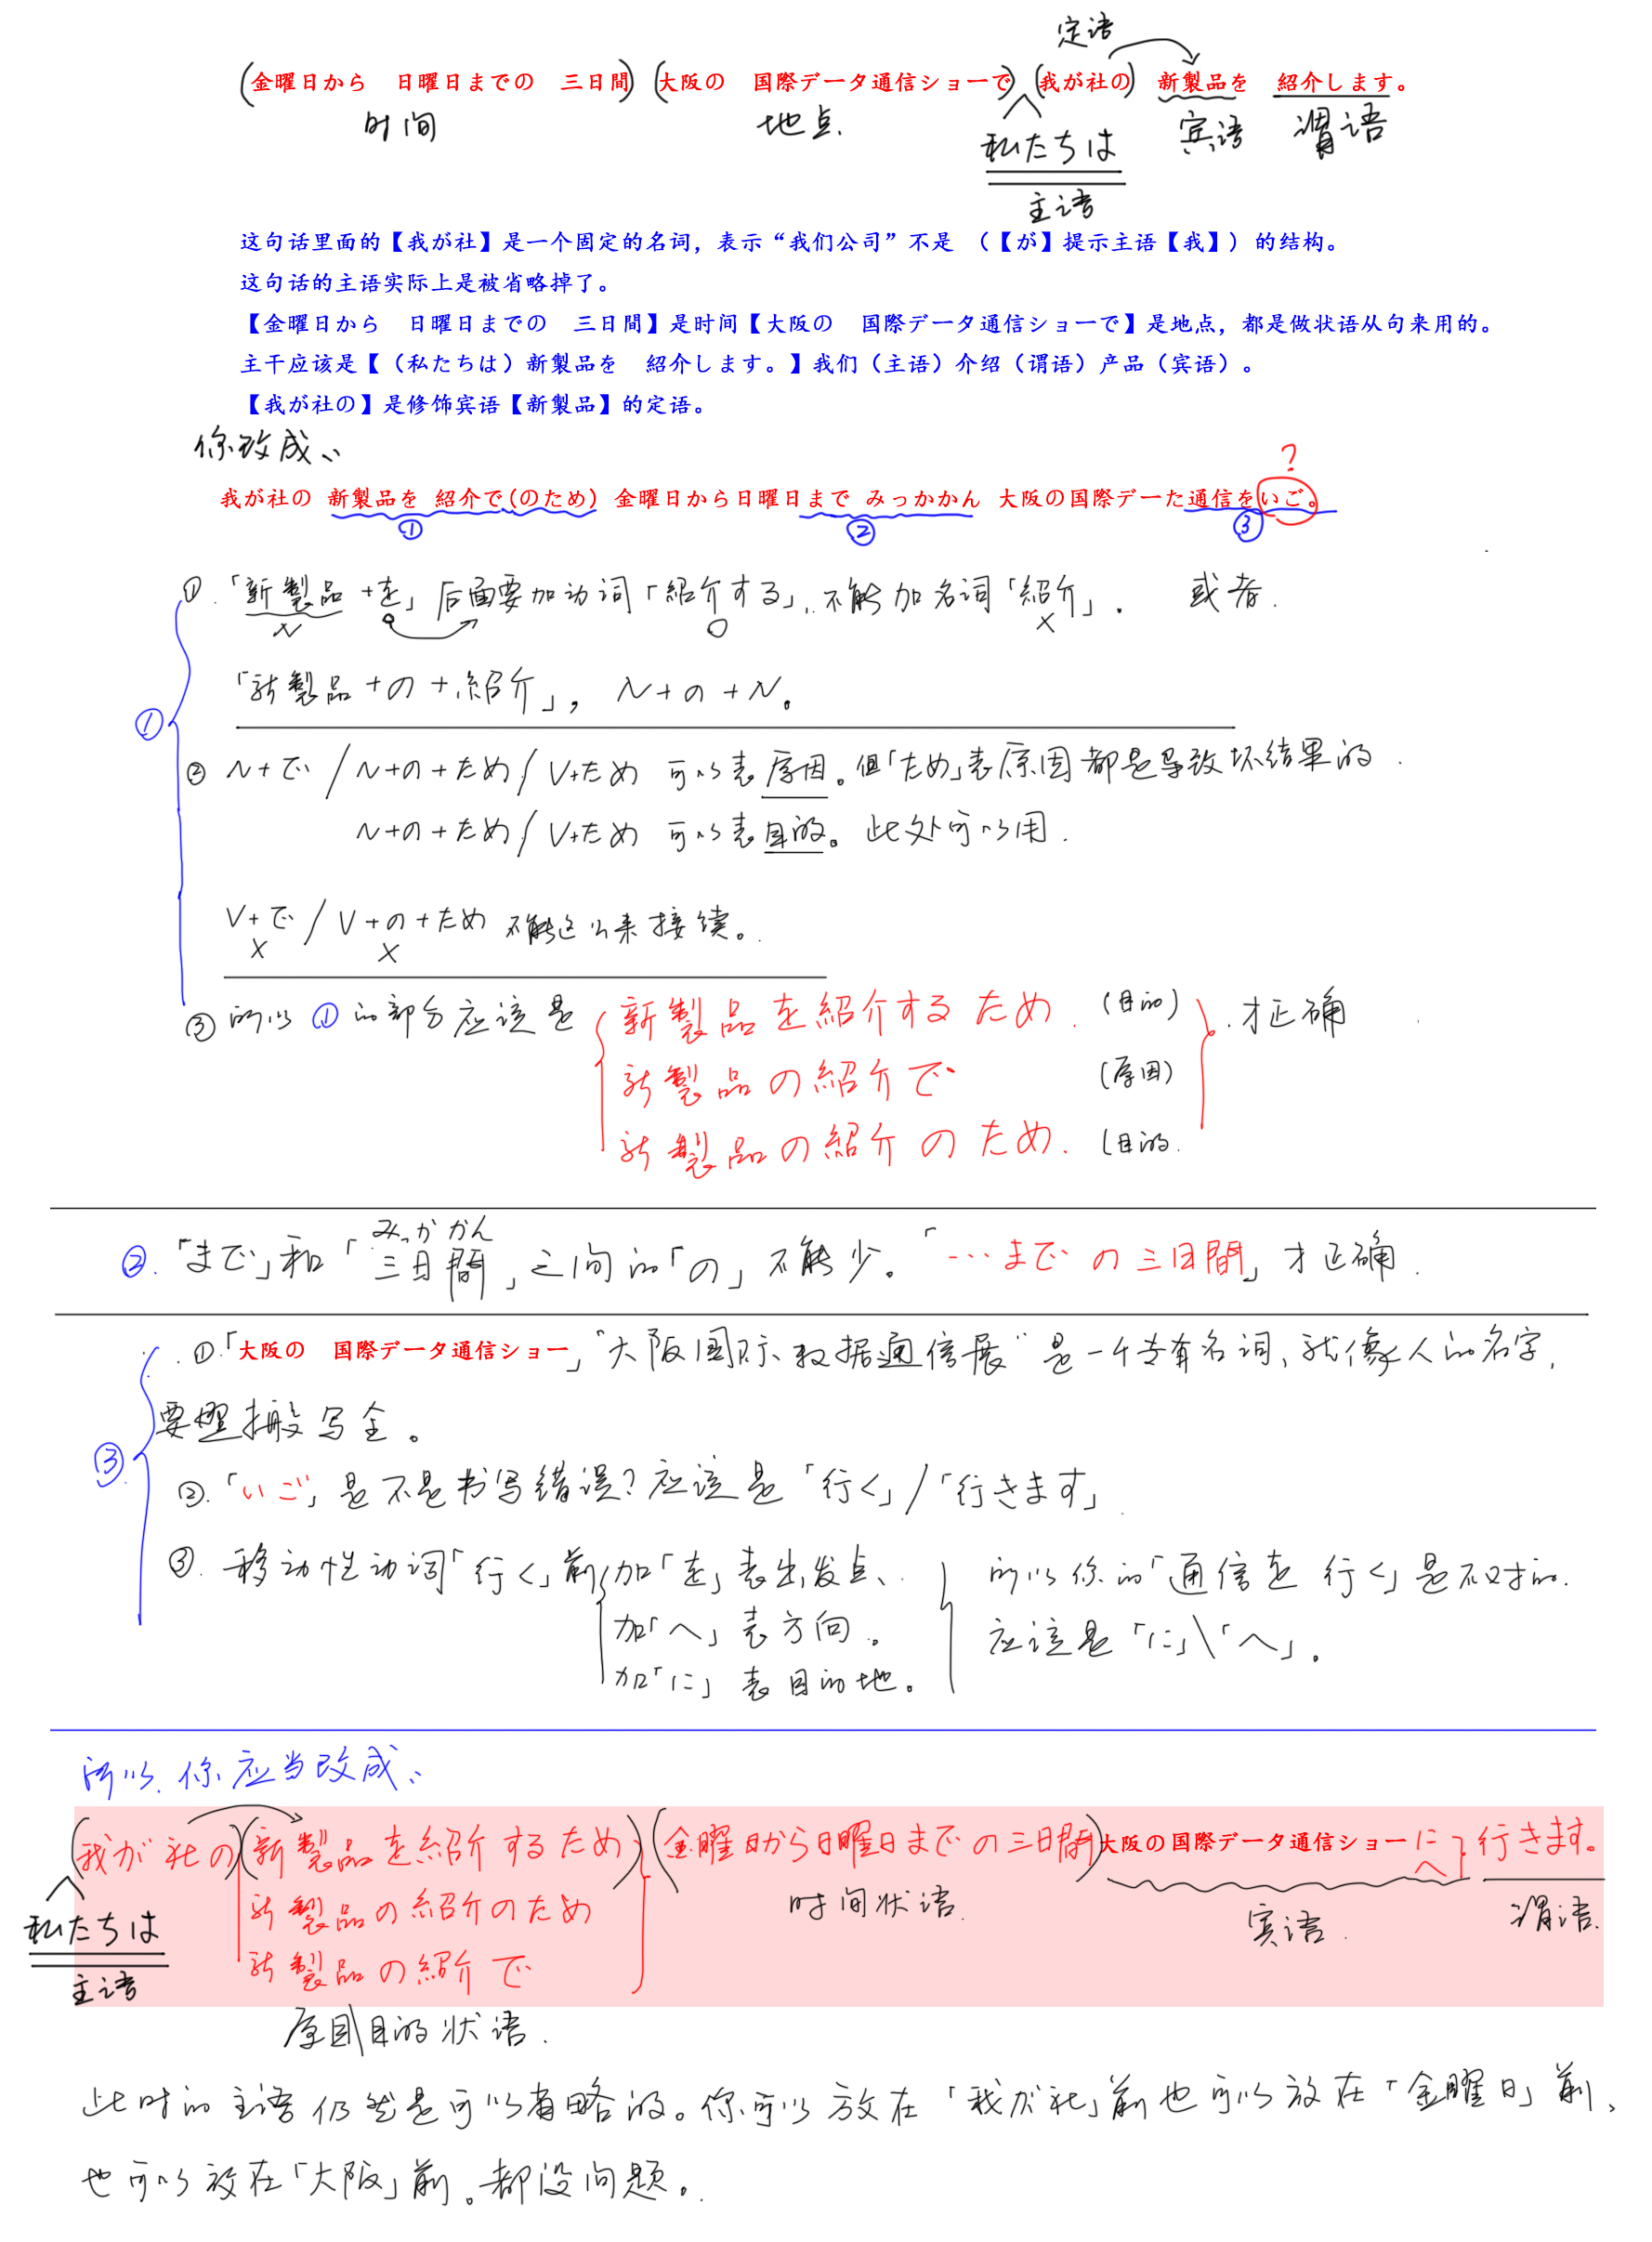 定语
(金曜日から　日曜日までの　三日間)(大阪の　国際データ通信ショーで)(我が社の)　新製品を　紹介します。
时间　地点.　私たちは　宾语　谓语
主语
这句话里面的【我が社】是一个固定的名词，表示“我们公司”不是　（【が】提示主语【我】）的结构。
这句话的主语实际上是被省略掉了。
【金曜日から　日曜日までの　三日間】是时间【大阪の　国際データ通信ショーで】是地点，都是做状语从句来用的。
主干应该是【（私たちは）新製品を　紹介します。】我们（主语）介绍（谓语）产品（宾语）。
【我が社の】是修饰宾语【新製品】的定语。
你改成:
?
我が社の 新製品を 紹介で(のため) 金曜日から日曜日まで みっかかん 大阪の国際デーた通信をいご。
① ② ③
①.「新製品+を」后面要加动词「紹介する」,不能加名词「紹介」.　或者.
N　○　×
「新製品+の+紹介」, N+の+N。
①
② N+で/N+の+ため/V+ため 可以表原因。但「ため」表原因都是导致坏结果的.
N+の+ため/V+ため 可以表目的。此处可以用.
V+で/V+の+ため 不能这么来接续。
×　×
③ 所以①的部分应该是 新製品を紹介するため.（目的）才正确
新製品の紹介で （原因）
新製品の紹介のため.（目的.
みっかかん
②.「まで」和「三日間」之间的「の」不能少。「…までの三日間」才正确.
①「大阪の　国際データ通信ショー」“大阪国际数据通信展”是一个专有名词、就像人的名字,
要照搬写全。
③
②.「いご」是不是书写错误?应该是「行く」/「行きます」.
③. 移动性动词「行く」前加「を」表出发点、 所以你的「通信を 行く」是不对的.
加「へ」表方向。　应该是「に」\「へ」.
加「に」表目的地。
所以.你应当改成:
(我が社の)(新製品を紹介するため)(金曜日から日曜日までの三日間)大阪の国際データ通信ショーに 行きます。
へ
新製品の紹介のため　时间状语.　宾语.　谓语.
私たちは
新製品の紹介で
主语
原因\目的状语.
此时的主语仍然是可以省略的。你可以放在「我が社」前也可以放在「金曜日」前、
也可以放在「大阪」前。都没问题。